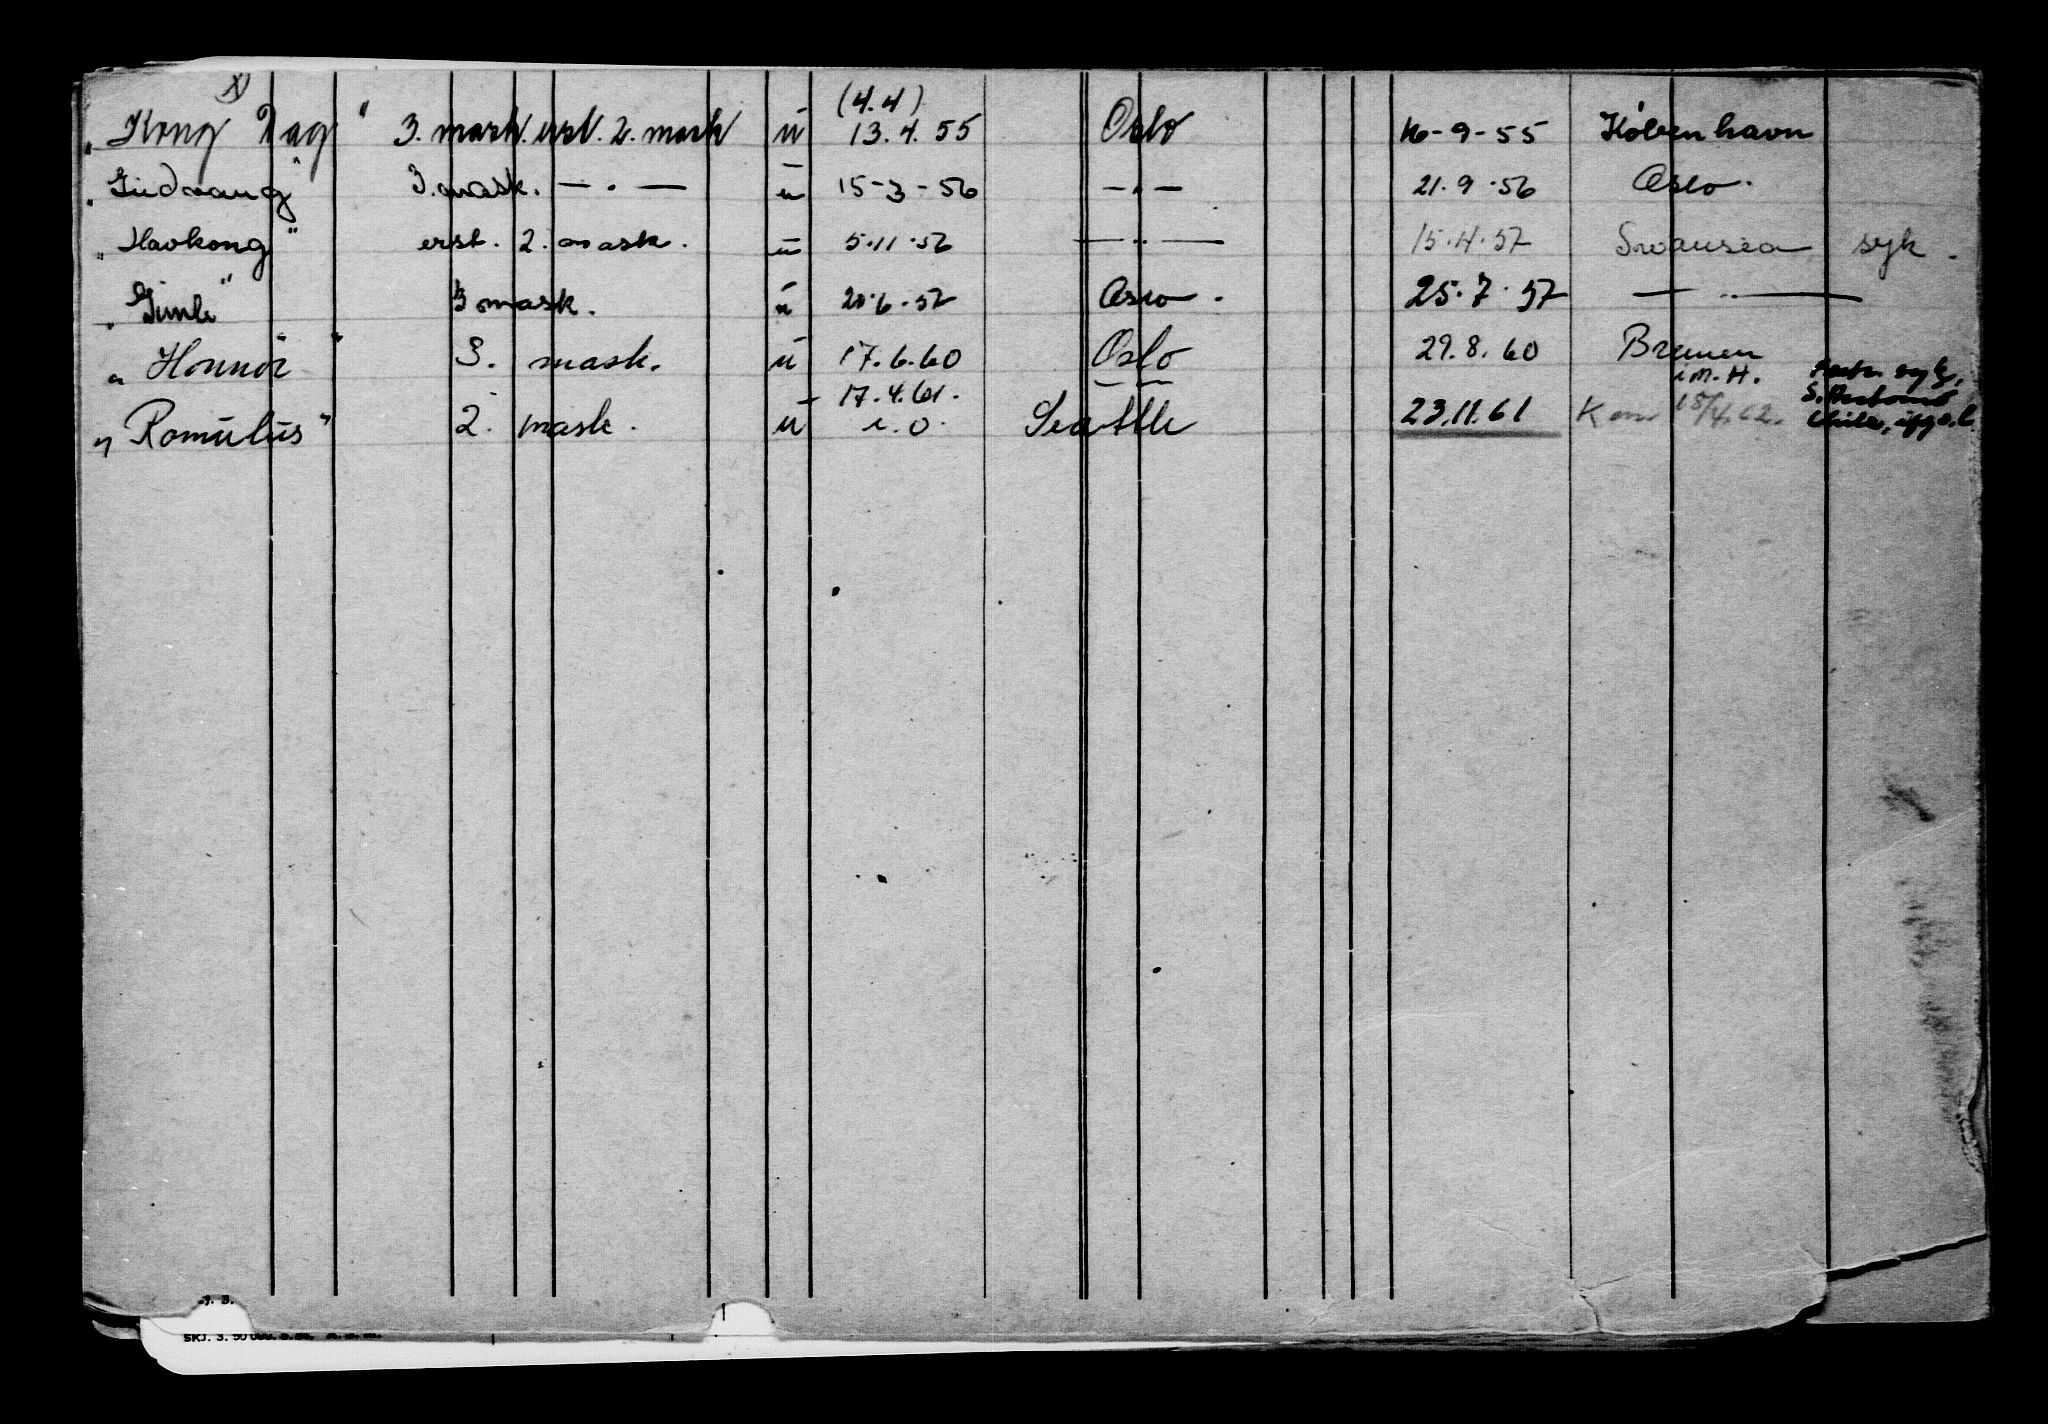 X)
„Kong Dag" 3. mask. erst. 2. mask u (4.4) 13.4.55 Oslo 16-9-55 København
„Gudvang" 3. mask. — . — u 15-3-56 — . — 21.9.56 Oslo.
„Havkong" erst. 2. mask. u 5.11.56 — .. — 15.4.57 Swansea syk.
„Gimle" 3 mask. u 20.6.57 Oslo. 25.7.57 — .. —
„Honnör" 3. mask. u 17.6.60 Oslo 29.8.60 Bremen
17.4.61. i M.H. syk,
„Romulus" 2. mask. u i.o. Seattle 23.11.61 K 18/4.62. S. Antonio
Chile,
SKJ. 3. 50 000.